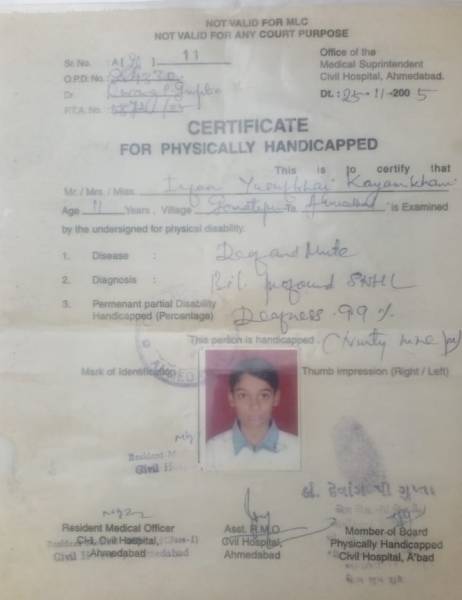 NOT VALID FOR MLC
NOT VALID FOR ANY COURT PURPOSE
Sr. No. A/ / 11
O.P.D. No.
Dr. Gupta
P.T.A. No.
Office of the
Medical Suprintendent
Civil Hospital, Ahmedabad.
Dt.: 25-11-2005
CERTIFICATE
FOR PHYSICALLY HANDICAPPED
This is to certify that
Mr. / Mrs. / Miss Yusufbhai Kayamkhani
Age 11 Years, Village To. is Examined
by the undersigned for physical disability.
1. Disease : Deaf and Mute
2. Diagnosis : Bil. profound SNHL
3. Permenant partial Disability
Handicapped (Percentage) Deafness 99%
This person is handicapped. (Ninty nine
Mark of Identification
Thumb impression (Right / Left)
Resident M
Civil H
ગુપ્તા
Resident Medical Officer
Civil Hospital,
Ahmedabad
Asst. R.M.O
Civil Hospital,
Ahmedabad
Member of Board
Physically Handicapped
Civil Hospital, A'bad